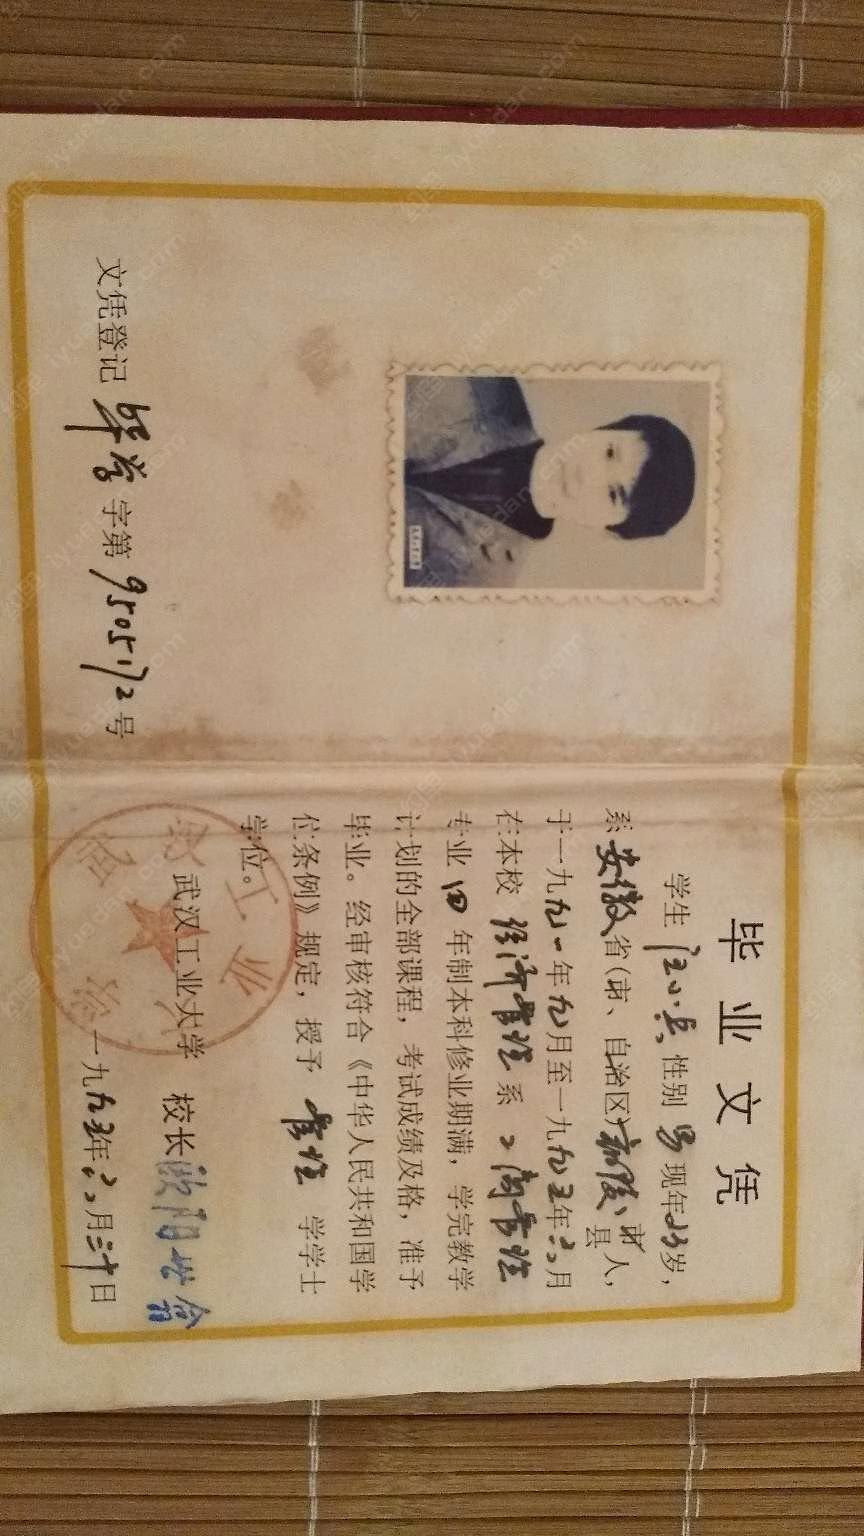 文凭登记 毕学 字第 9505172 号
毕业文凭
学生 汪小兵 性别 男 现年23岁，
系 安徽 省(市、自治区) 南陵 市县人，
于一九九一年九月至一九九五年六月
在本校 经济管理 系 工商管理
专业 四 年制本科修业期满，学完教学
计划的全部课程，考试成绩及格，准予
毕业。经审核符合《中华人民共和国学
位条例》规定，授予 管理 学学士
学位。
武汉工业大学 校长 欧阳世翕
一九九五年六月三十日